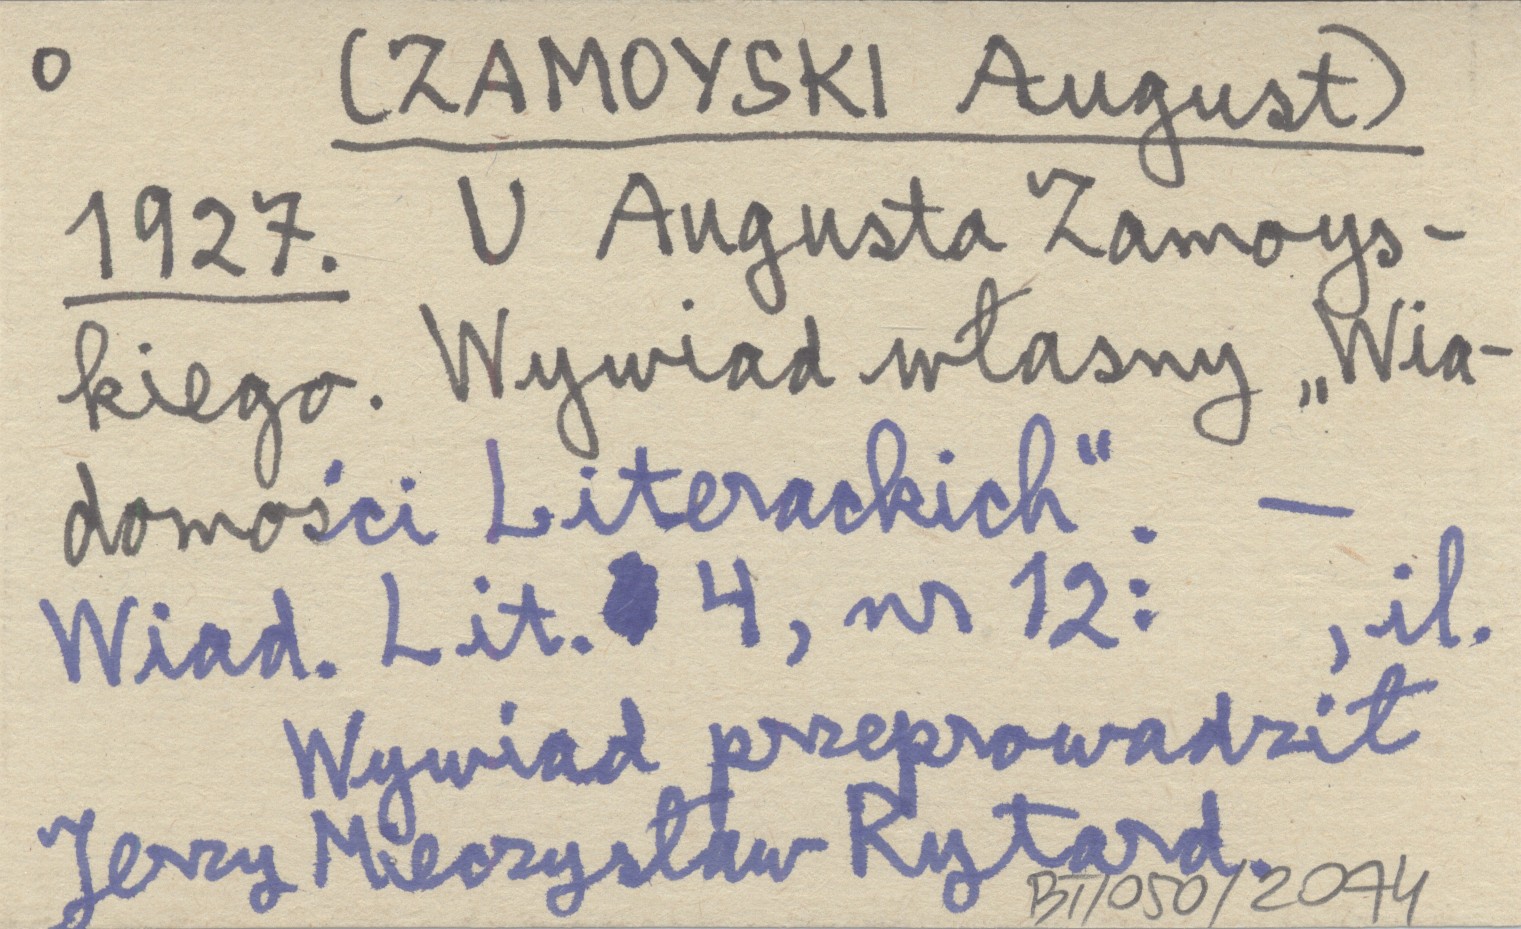 o (ZAMOYSKI August)
1927. U Augusta Zamoys-
kiego. Wywiad własny „Wia-
domości Literackich". —
Wiad. Lit. 4, nr 12: , il.
Wywiad przeprowadził
Jerzy Mieczysław Rytard.
BT/050/2074